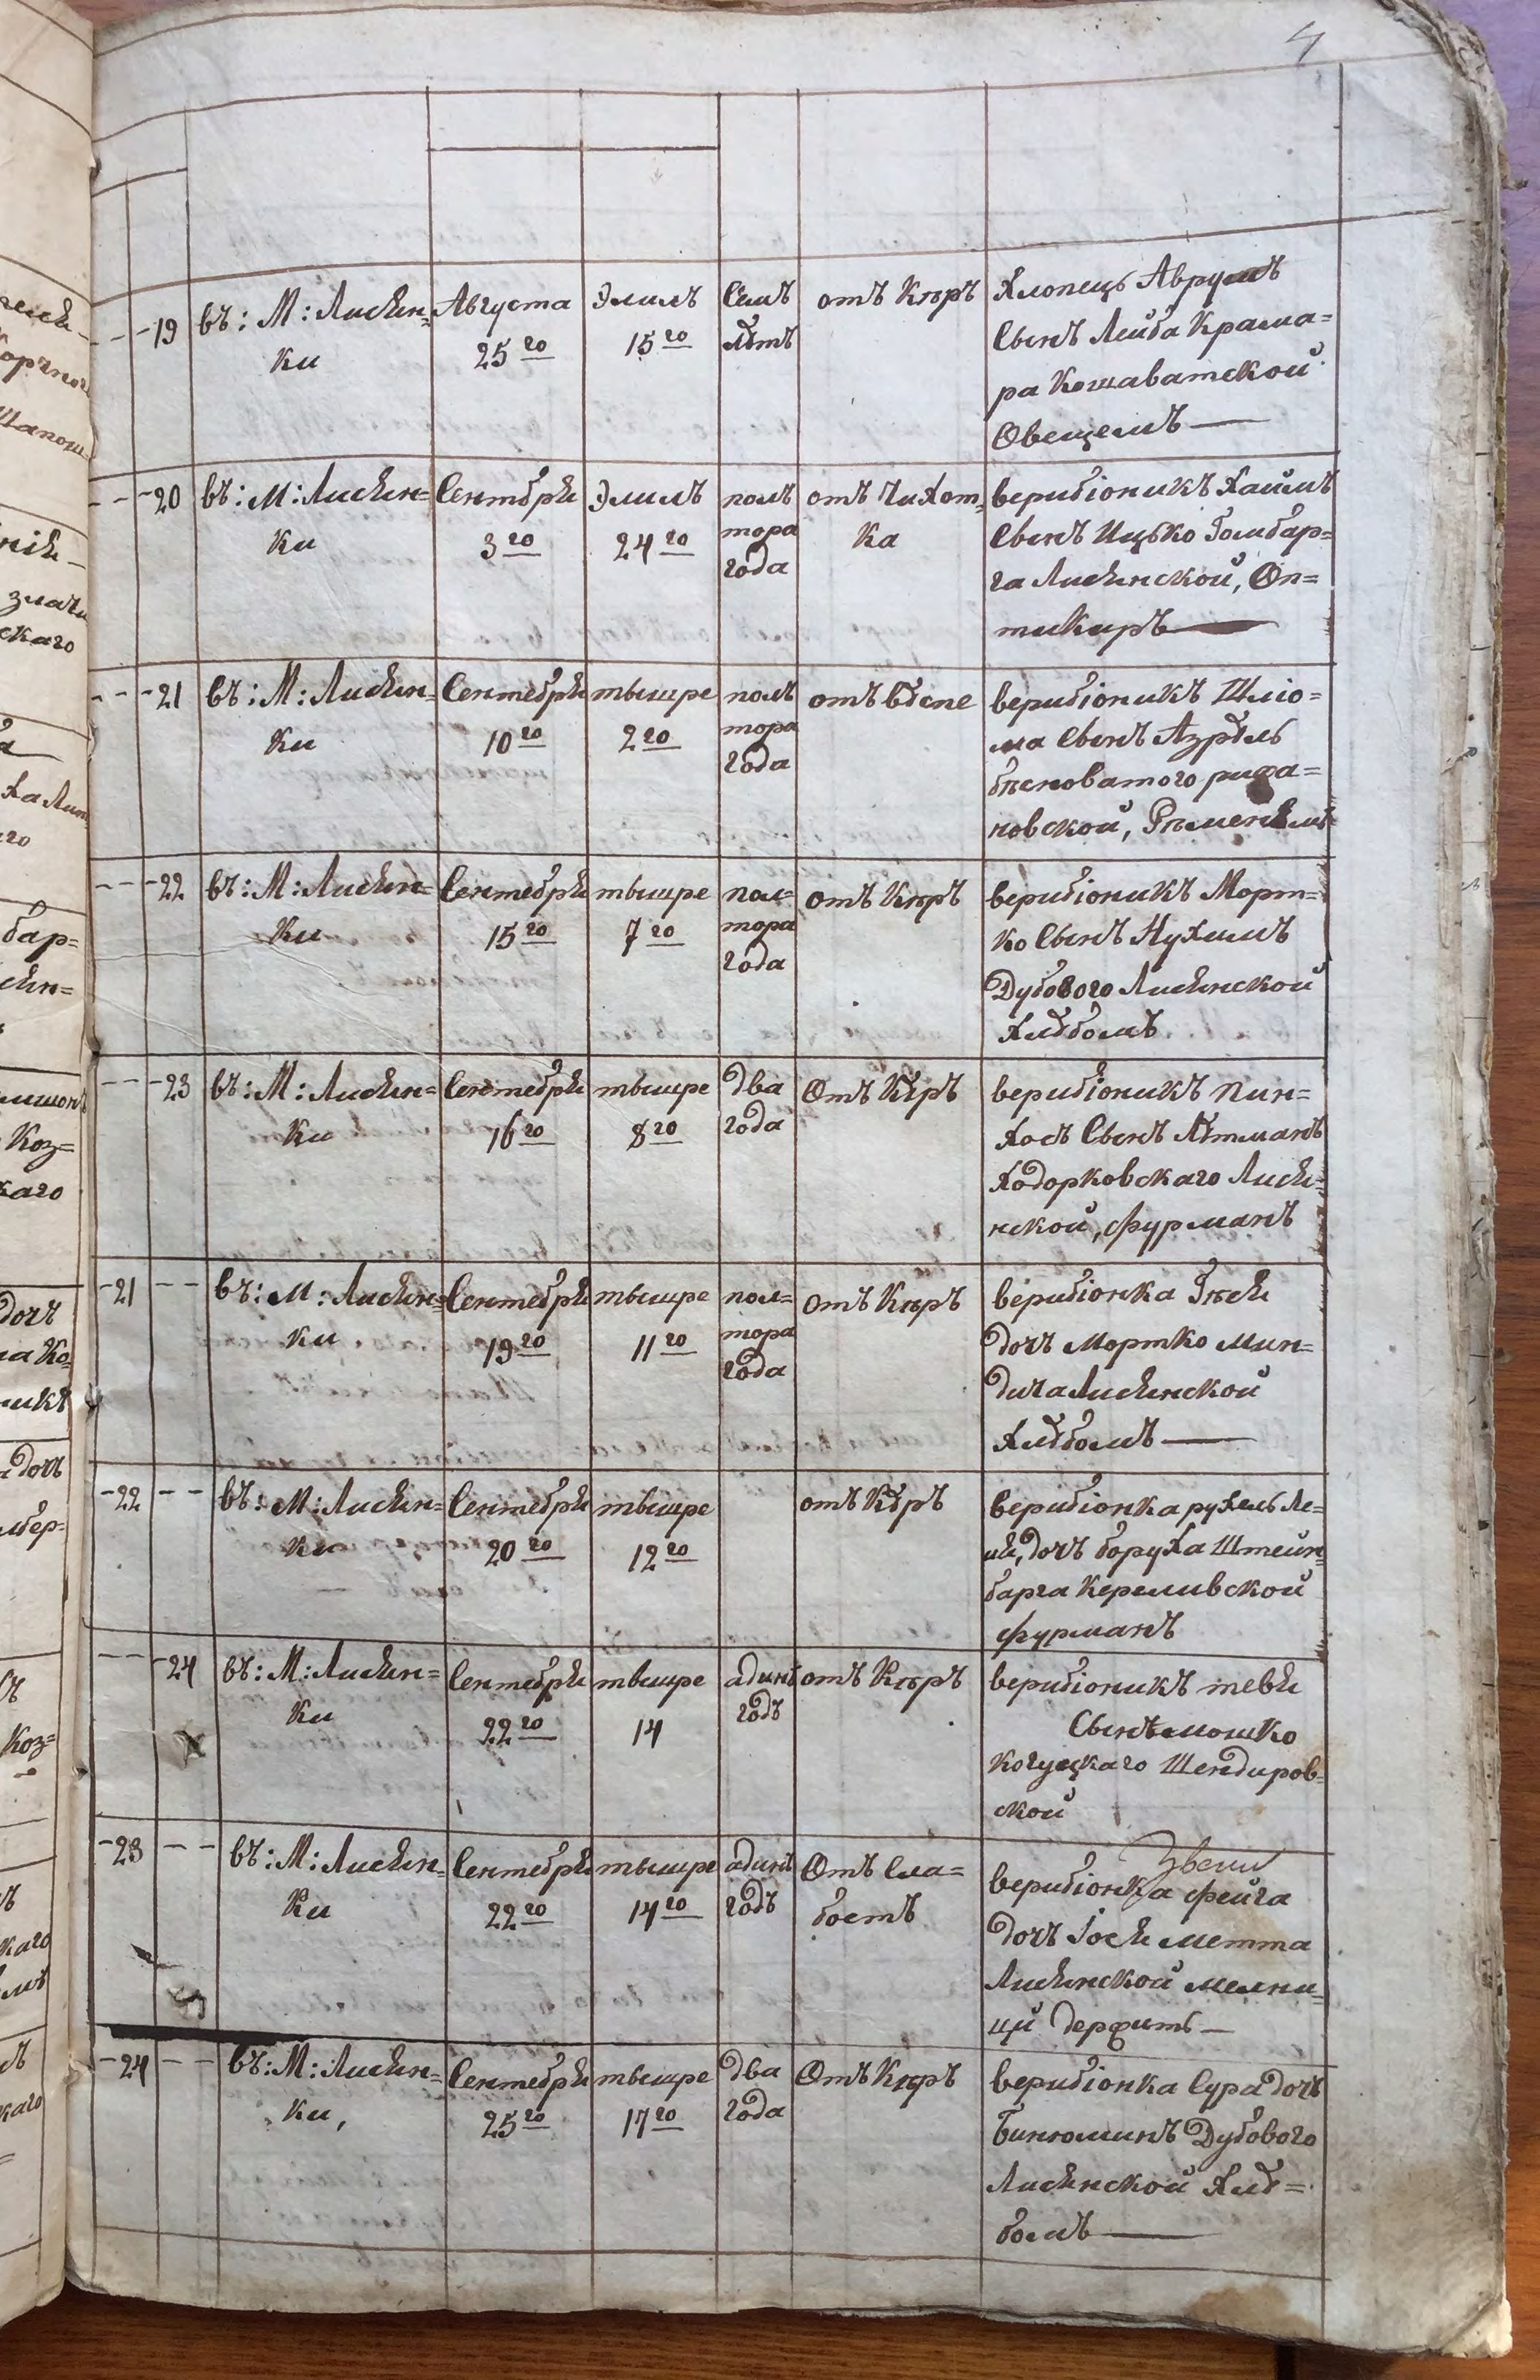 4
19 въ: М: Лисян=
ки
Августа
25го
Элилъ
15го
Семъ
лѣтъ
отъ Кѣръ
Хлопецъ Аврумъ
Сынъ Лейба Крама=
ра Кошаватской
Овещемъ
20 въ: М: Лисян=
ки
Сентѣбря
3го
Элилъ
24го
полъ
тора
года
отъ чихот
ка
верибіоникъ Хаимъ
Сынъ Ицько Гомбар=
га Лисянской, Оп=
тикиръ
21 въ: М: Лисян=
ки
Сентебря
10го
тышре
2го
полъ
тора
года
отъ вѣспе
верибіоникъ Шліо=
ма Сынъ Азрѣль
бѣсноватого
новской,
22 въ: М: Лисян=
ки
Сентебря
15го
тышре
7го
пол=
тора
года
отъ Кѣръ
верибіоникъ Морт=
ко Сынъ Нухимъ
Дубового Лисянской
Хлѣбомъ
23 въ: М: Лисян=
ки
Сентебря
16го
тышре
8го
два
года
Отъ Кѣръ
верибіоникъ Пин=
хосъ Сынъ Лѣтманъ
Ходорковскаго Лися=
нской, фурманъ
21 въ: М: Лисян=
ки
Сентебря
19го
тышре
11го
пол=
тора
года
отъ Кѣръ
верибіонка Гѣся
дочъ Мортко Мин=
дича Лисянской
Хлѣбомъ
22 въ: М: Лисян=
ки
Сентебря
20го
тышре
12го
отъ Кѣръ
верибіонка рухель Ле=
ия, дочъ боруха Штейн=
барга Керсливской
фурманъ
24 въ: М: Лисян=
ки
Сентебря
22го
тышре
14
адинъ
годъ
отъ Кѣръ
верибіоникъ тевя
Сынъ мошко
Когуцкаго Шендиров=
ской
23 въ: М: Лисян=
ки
Сентебря
22го
тышре
14го
адинъ
годъ
Отъ Сла=
бостъ
верибіонка фейга
дочъ Іося метта
Лисянской мелни=
ци держитъ
24 въ: М: Лисян=
ки,
Сентебря
25го
тышре
17го
два
года
Отъ Кѣръ
верибіонка Сура дочъ
Бинюминъ Дубового
Лисянской Хлѣ=
бомъ